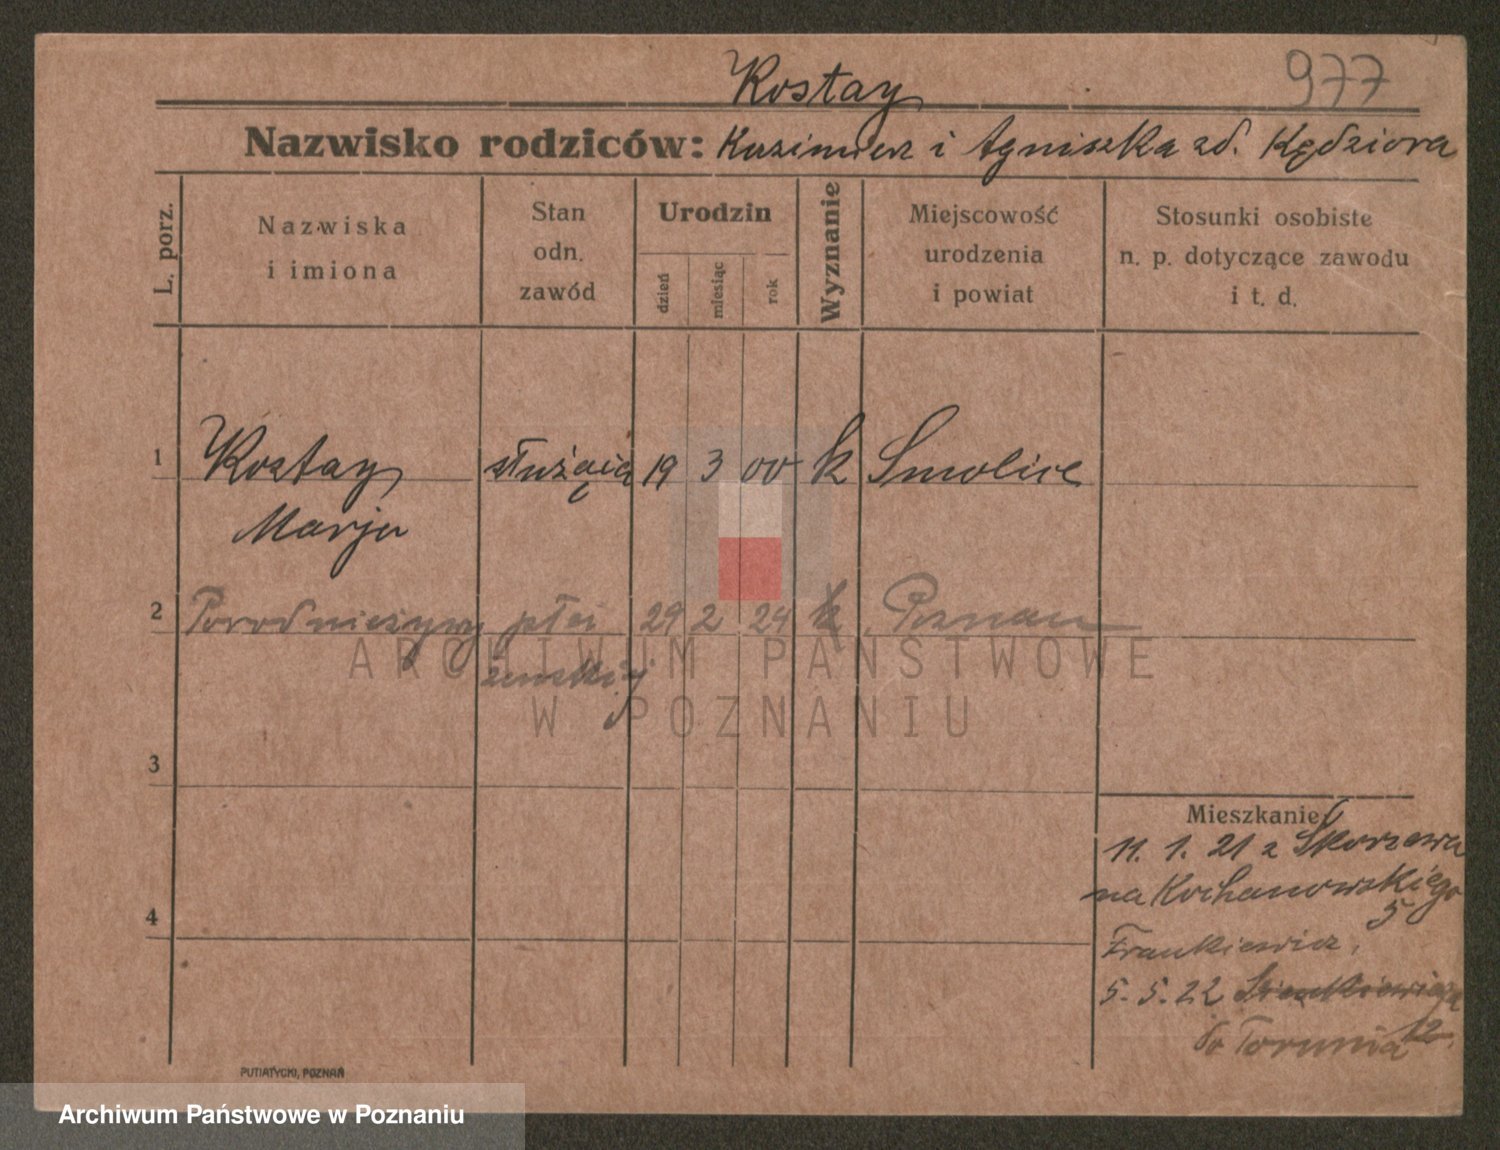 Kostay
977
Nazwisko rodziców: Kazimierz i Agniszka zd. Kędziora
L. porz.
Nazwiska
i imiona
Stan
odn.
zawód
Urodzin
dzień
miesiąc
rok
Wyznanie
Miejscowość
urodzenia
i powiat
Stosunki osobiste
n. p. dotyczące zawodu
i t. d.
1 Kostay służąca 19 3 00 k Smolice
Marja
2 Porod nieżywy płci 29 2 24 k Poznań
żeńskiej
ARCHIWUM PAŃSTWOWE
W POZNANIU
3
Mieszkanie
11. 1. 21 z Skorzewa
na Kochanowskiego
5
4
Frankiewicz,
5. 5. 22 Sienkiewicza
12.
do Torunia
PUTIATYCKI, POZNAŃ
Archiwum Państwowe w Poznaniu